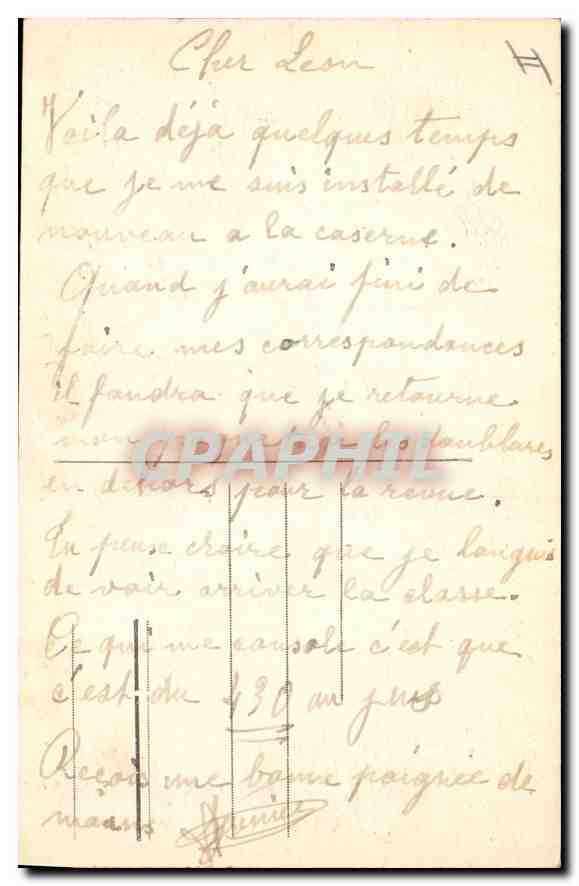 Cher Leon
Voila déjà quelques temps
que je me suis installé de
nouveau a la caserne.
Quand j'aurai fini de
faire mes correspondances
il faudra que je retourne
mon
CPAPHIL
en dehors pour la revue.
Tu peuse croire que je languis
de voir arriver la classe.
Ce qui me console c'est que
c'est du 430 au jus
Reçois une bonne poignée de
mains